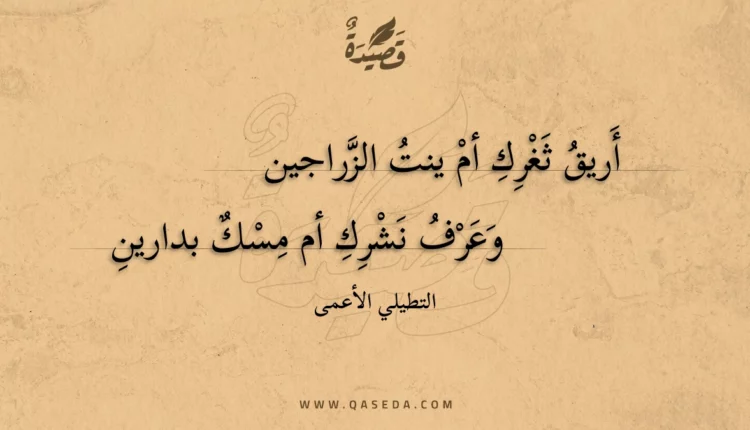 قَصِيدَةٌ
أَريقُ ثَغْرِكِ أمْ ينتُ الزَّراجين
وَعَرْفُ نَشْرِكِ أم مِسْكٌ بدارينِ
التطيلي الأعمى
WWW.QASEDA.COM